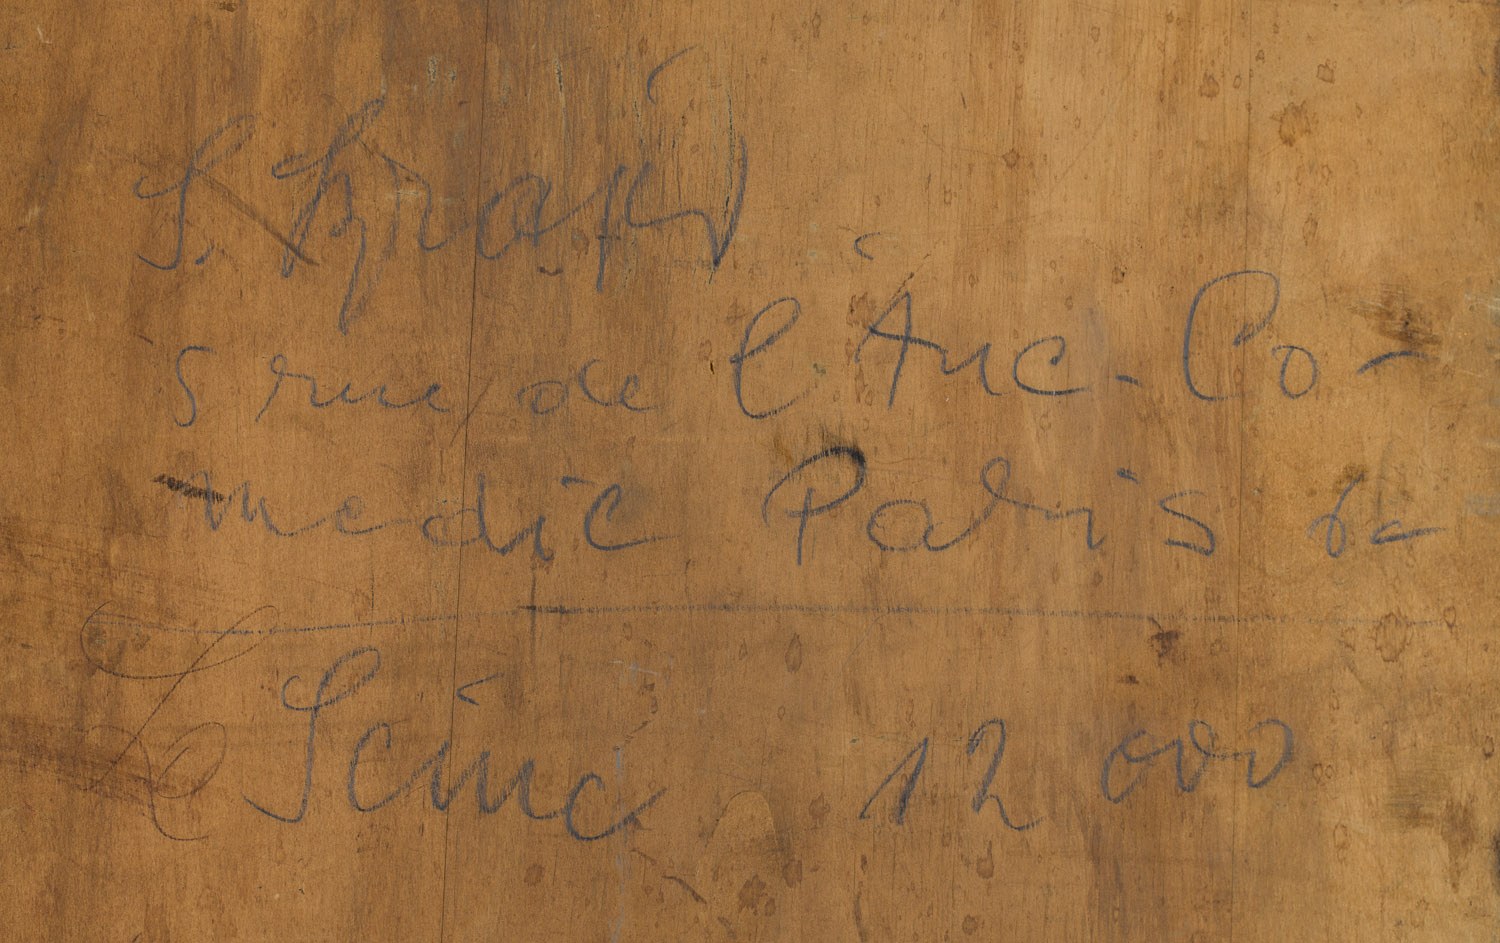 S.
5 rue de l'Anc. Co-
medie Paris 6e
Seine 12 000